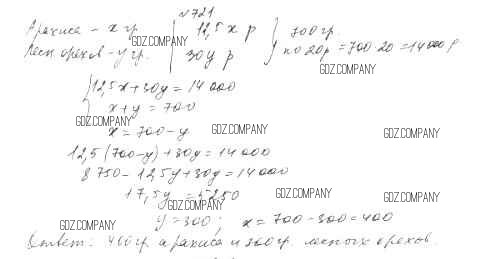 №721
Арахиса - х гр. 12,5 х р 700 гр.
Лесн. орехов - у гр. 30 у р по 20р = 700·20 = 14000 р
GDZ.COMPANY
GDZ.COMPANY
12,5х + 30у = 14 000
х + у = 700
GDZ.COMPANY
х = 700 - у
GDZ.COMPANY
GDZ.COMPANY
12,5(700-у) + 30у = 14 000
8 750 - 12,5у + 30у = 14 000
17,5у = 5250
GDZ.COMPANY
GDZ.COMPANY
GDZ.COMPANY
у = 300; х = 700 - 300 = 400
GDZ.COMPANY
Ответ: 400гр арахиса и 300гр. лесных орехов.